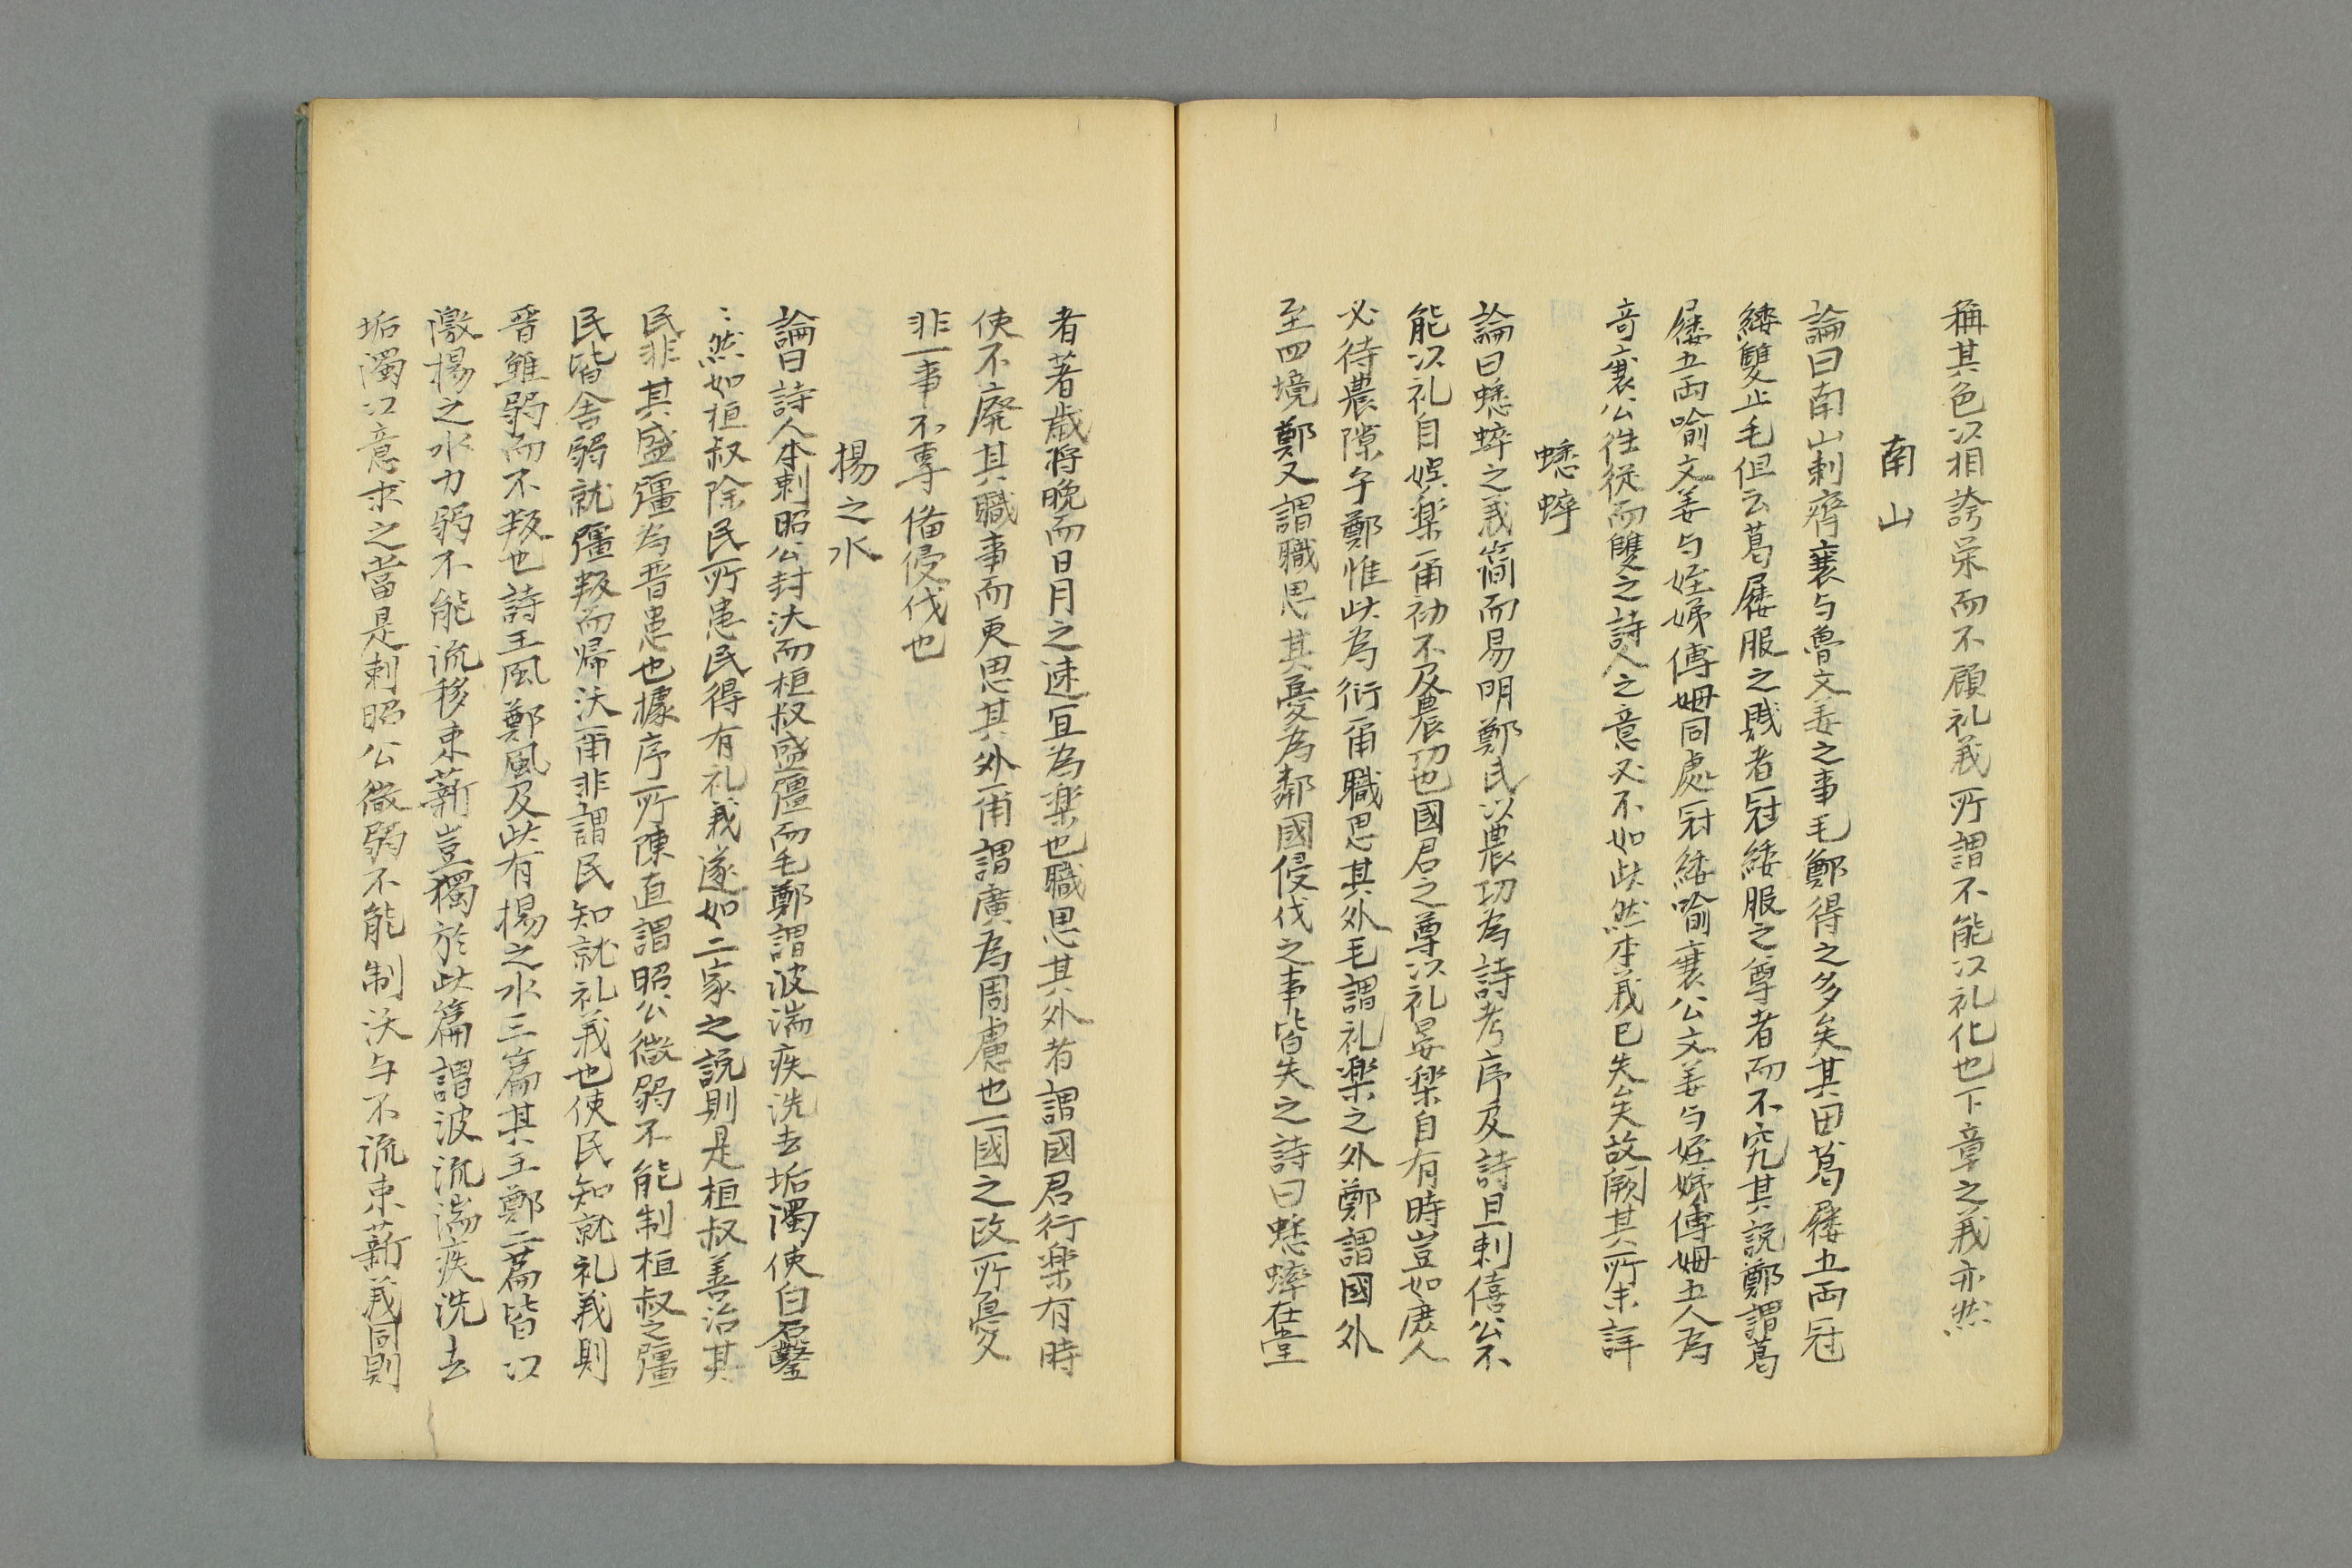 稱其色以相誇榮而不顧礼義所謂不能以礼化也下章之義亦然
南山
論曰南山刺齊襄与魯文姜之事毛鄭得之多矣其田葛屨五両冠
緌雙止毛但云葛屨服之賎者冠緌服之尊者而不究其説鄭謂葛
屨五両喻文姜与姪娣傅姆同處冠緌喻襄公文姜与姪娣傅姆五人為
竒襄公徃從而雙之詩人之意必不如此然本義已失矣故闕其所未詳
蟋蟀
論曰蟋蟀之義簡而易明鄭氏以農功為詩考序及詩且刺僖公不
能以礼自娯楽爾初不及農功也國君之尊以礼晏楽自有時豈如庶人
必待農隙乎鄭惟此為衍爾職思其外毛謂礼楽之外鄭謂國外
至四境鄭又謂職思其憂為鄰國侵伐之事皆失之詩曰蟋蟀在堂
者著歳将晩而日月之速冝為楽也職思其外者謂國君行楽有時
使不廢其職事而更思其外爾謂廣為周慮也一國之政所憂
非一事不専備侵伐也
揚之水
論曰詩人本刺昭公封沃而桓叔盛彊而毛鄭謂波湍疾洗去垢濁使白石鑿
〻然如桓叔除民所患民得有礼義遂如二家之説則是桓叔善治其
民非其盛彊為晋患也據序所陳直謂昭公微弱不能制桓叔之彊
民皆舎弱就彊叛而帰沃爾非謂民知就礼義也使民知就礼義則
晋雖弱而不叛也詩王風鄭風及此有揚之水三篇其王鄭二篇皆以
激揚之水力弱不能流移束薪豈獨於此篇謂波流湍疾洗去
垢濁以意求之當是刺昭公微弱不能制沃与不流束薪義同則